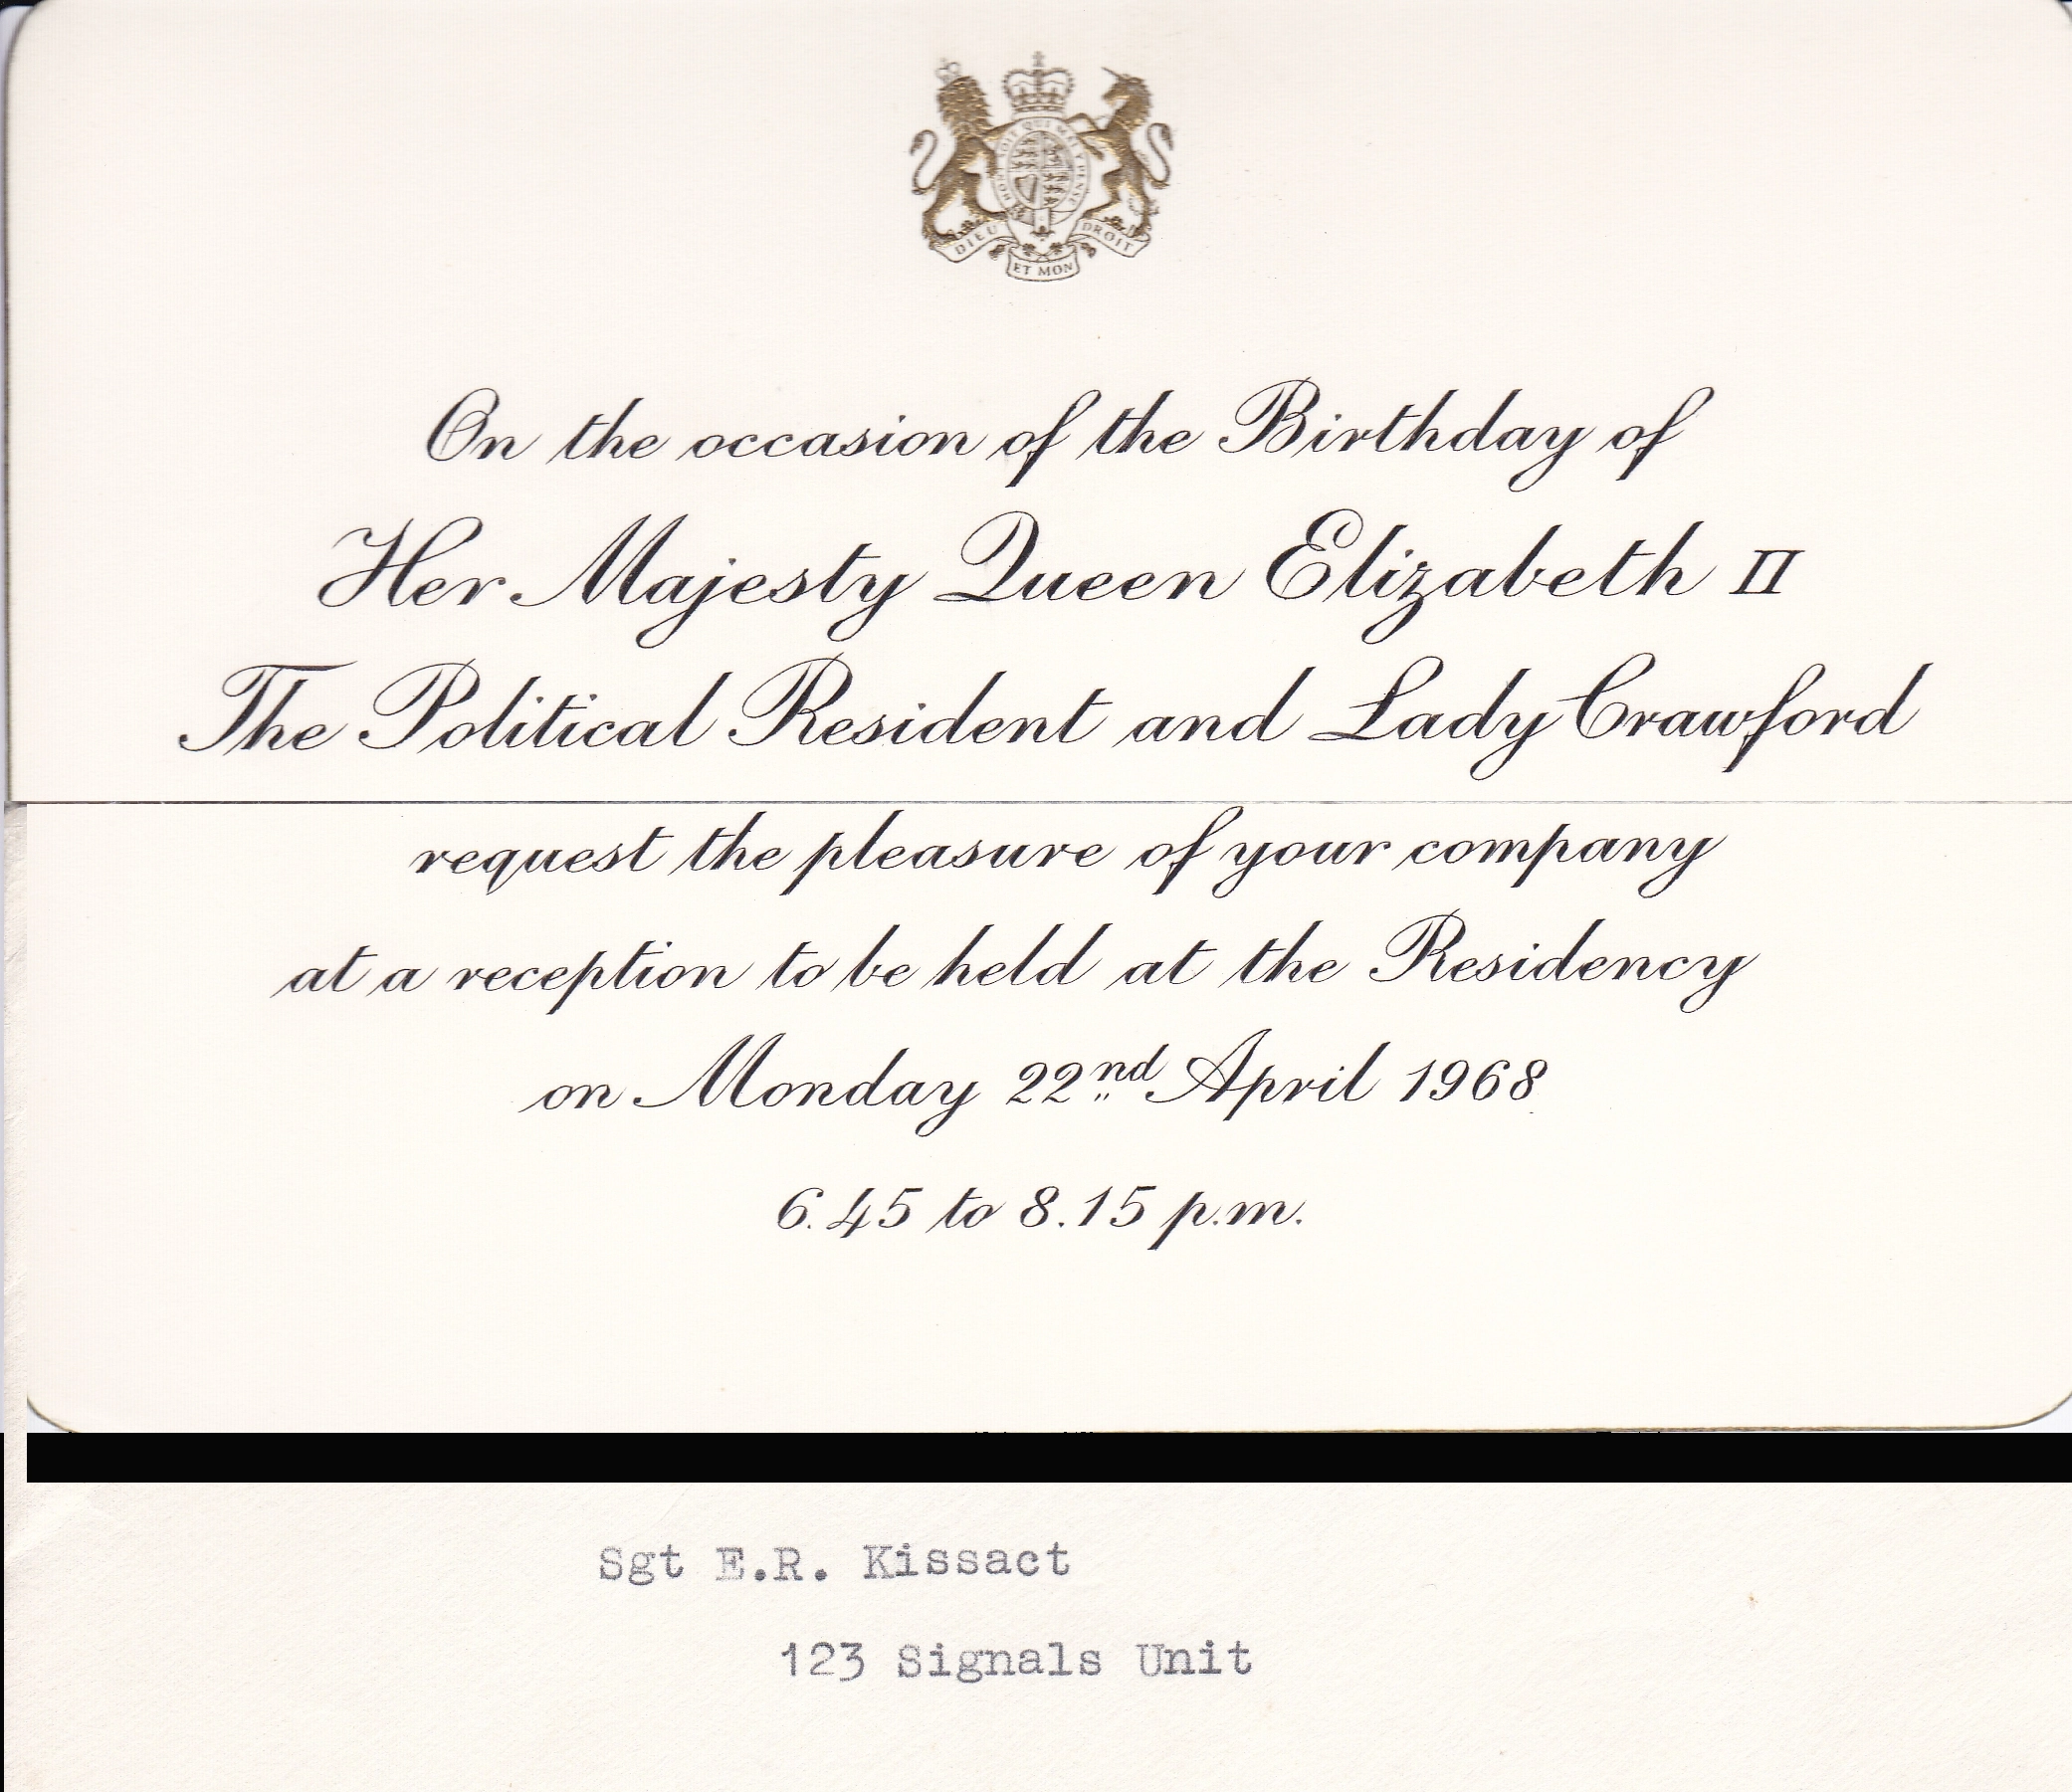 HONI SOIT QUI MAL Y PENSE
DIEU ET MON DROIT
On the occasion of the Birthday of
Her Majesty Queen Elizabeth II
The Political Resident and Lady Crawford
request the pleasure of your company
at a reception to be held at the Residency
on Monday 22nd April 1968
6.45 to 8.15 p.m.
Sgt E.R. Kissact
123 Signals Unit